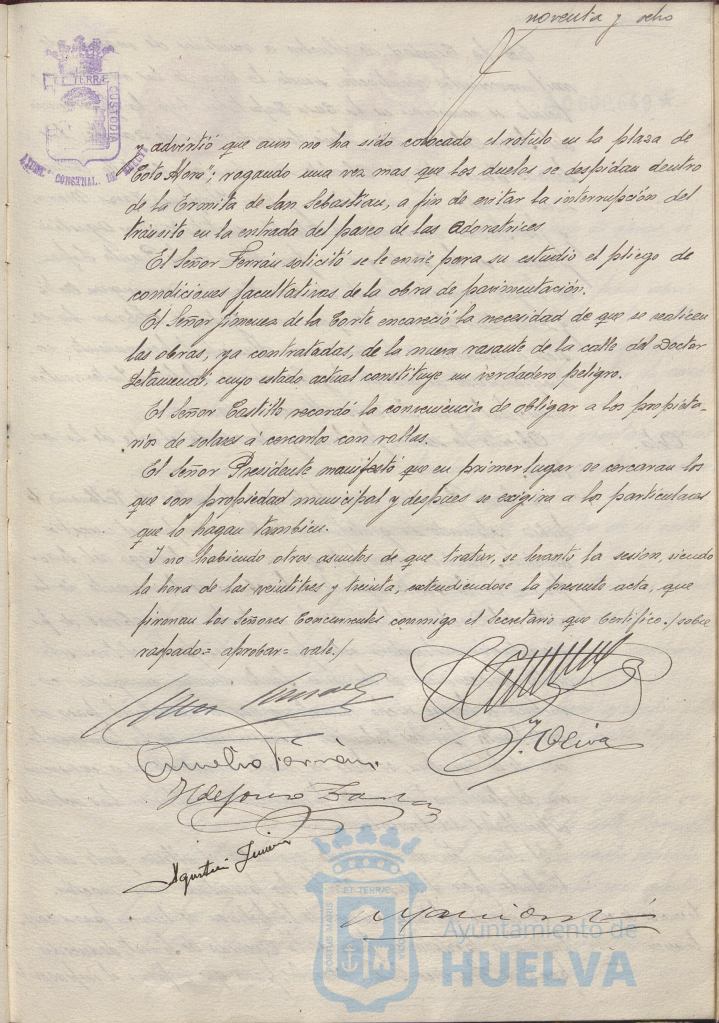 noventa y ocho
ET TERRÆ
CUSTODIA
AYUNT.º CONSTNAL. DE HUELVA
y advirtió que aun no ha sido colocado el rotulo en la plaza de
"Coto Mora"; rogando una vez mas que los duelos se despidan dentro
de la Ermita de San Sebastian, a fin de evitar la interrupción del
tránsito en la entrada del paseo de las Adoratrices
El Señor Terrán solicitó se le envie para su estudio el pliego de
condiciones facultativas de la obra de pavimentación.
El Señor Jimenez de la Corte encareció la necesidad de que se realicen
las obras, ya contratadas, de la nueva rasante de la calle del Doctor
Letamendi, cuyo estado actual constituye un verdadero peligro.
El Señor Castillo recordó la conveniencia de obligar a los propieta-
rios de solares á cercarlos con vallas.
El Señor Presidente manifestó que en primer lugar se cercaran los
que son propiedad municipal y despues se exigira a los particulares
que lo hagan tambien.
Y no habiendo otros asuntos de que tratar, se levantó la sesion, siendo
la hora de las veintitres y treinta, extendiendose la presente acta, que
firman los Señores Concurrentes conmigo el Secretario que Certifico./sobre
raspado= aprobar= vale./
J. Oliva
Aurelio Terrán
Ildefonso
Agustin Jimenez
ET TERRÆ
PORTUS MARIS
CUSTODIA
Ayuntamiento de
HUELVA